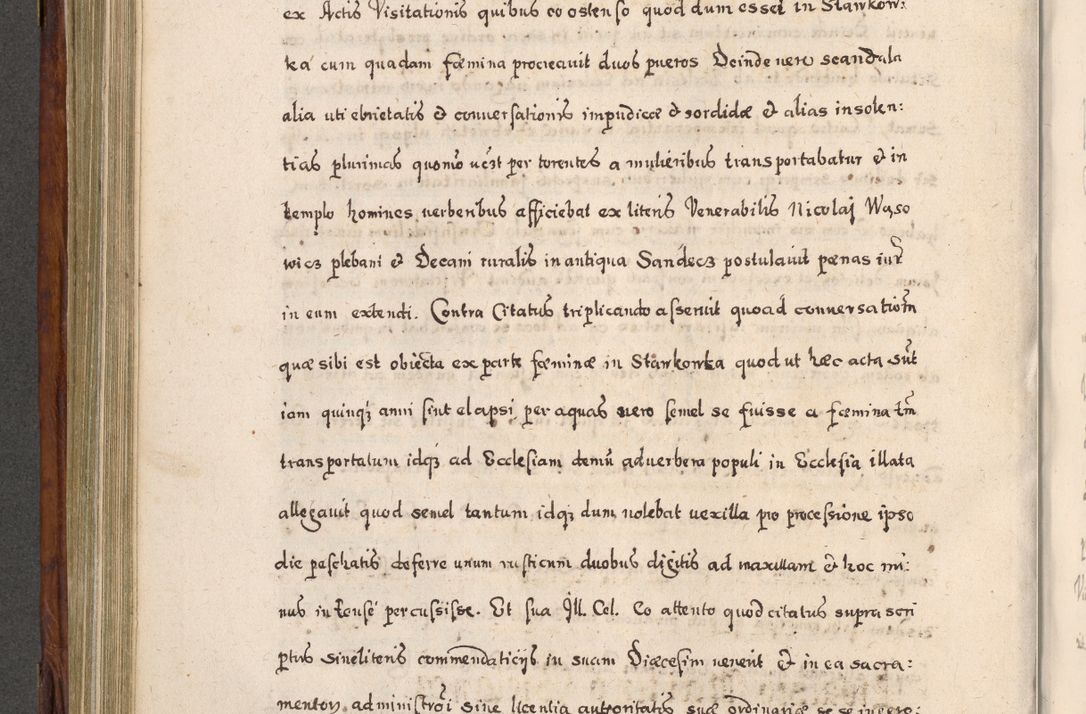 ex Actis Visitationis quibus eo ostenso quod dum esset in Stankow:
ka cum quadam fæmina procreavit duos pueros Deinde vero scandala
alia uti ebrietatis & conversationis impudicæ & sordidæ & alias insolen:
tias plurimas quomo per torentes a mulieribus transportabatur & in
templo homines verberibus afficiebat ex literis Venerabilis Nicolaj Wąso
wicz plebani & Decani ruralis in antiqua Sandecz postulavit pœnas iur
in eum extendi. Contra Citatus triplicando asseruit quoad conversationm
quæ sibi est obiecta ex parte fæminæ in Stankowka quod ut hæc acta sut
iam quinq; anni sint elapsi, per aquas vero semel se fuisse a fæmina tm
transportatum idq; ad Ecclesiam demu ad verbera populi in Ecclesia illata
allegavit quod semel tantum idq; dum nolebat vexilla pro processione ipso
die paschatis deferre unum rusticum duobus digitis ad maxillam & hoc mi:
nus intense percussisse. Et sua Ill. Cel. Eo attento quod citatus supra scri
ptus sine literis commendaticijs in suam Diæcesim venerit & in ea sacra:
mentor administroi sine licentia authoritatis suæ ordinariæ se se ingero: